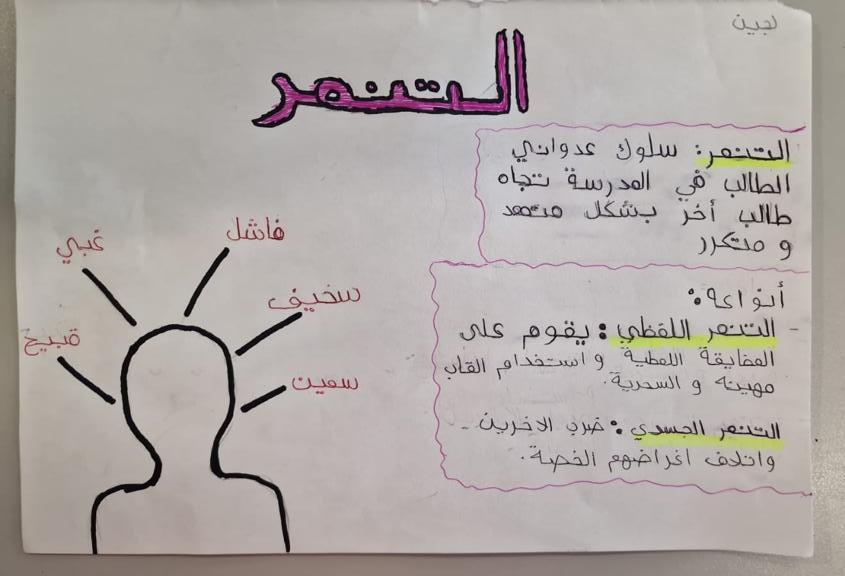 لجين
التنمر
التنمر: سلوك عدواني
الطالب في المدرسة تجاه
طالب أخر بشكل متعمد
و متكرر
أنواعه:
- التنمر اللفظي: يقوم على
المضايقة اللفظية و استخدام القاب
مهينه و السخرية.
التنمر الجسدي: ضرب الاخرين -
واتلاف اغراضهم الخصة.
فاشل
غبي
سخيف
قبيح
سمين